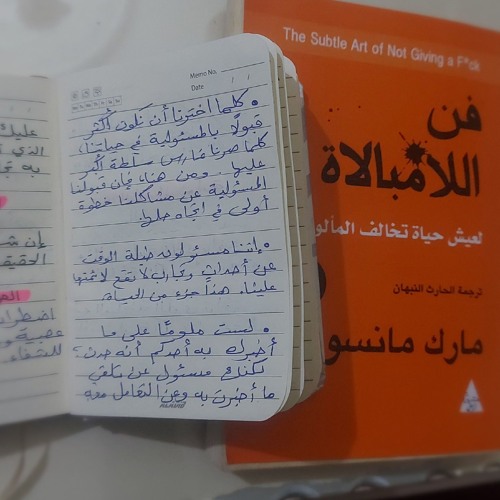 The Subtle Art of Not Giving a F*ck
فن
اللامبالاة
لعيش حياة تخالف المألو
ترجمة الحارث النبهان
مارك مانسو
Memo No.
Date
• كلما اخترنا أن نكون أكثر
قبولًا بالمسئولية في حياتنا،
كلما صرنا نمارس سلطة أكبر
عليها. ومن هنا، فإن قبولنا
المسئولية عن مشاكلنا خطوة
أولى في اتجاه حلها.
• إننا مسئولون طيلة الوقت
عن أحداث وتجارب لا تقع لائمتها
علينا. هذا جزء من الحياة.
• لست ملومًا على ما
أخبرك به أحدكم أنه حدث؟
لكنك مسئول عن تلقي
ما أُخبرت به وعن التعامل معه
عليك
الذي
به تجا
إن شـ
الحقيقـ
اضطرا
عصبية و
للشفاء